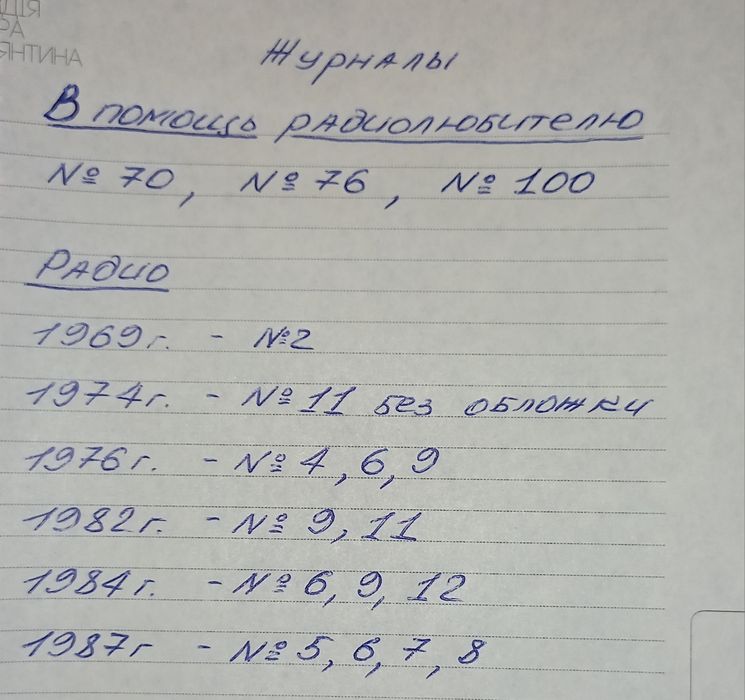 ДІЯ
РА
ЯНТИНА
Журналы
В помощь радиолюбителю
№ 70, № 76, № 100
Радио
1969г. - №2
1974г. - № 11 без обложки
1976г. - № 4, 6, 9
1982г. - № 9, 11
1984г. - № 6, 9, 12
1987г - № 5, 6, 7, 8